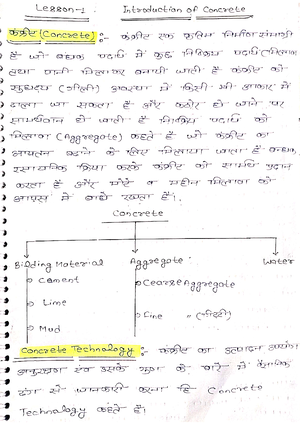 Lesson-1 : Introduction of Concrete
कंक्रीट (Concrete) :- कंक्रीट एक कृत्रिम निर्माण सामग्री
है जो बंधक पदार्थ में कुछ निष्क्रिय पदार्थ (मिलावा)
तथा पानी मिलाकर बनायी जाती है कंक्रीट को
सुघट्य (गीली) अवस्था में किसी भी आकार में
ढाला जा सकता है और कठोर हो जाने पर
सामर्थ्यवान हो जाती है निष्क्रिय पदार्थ को
मिलावा (Aggregate) कहते है जो कंक्रीट का
आयतन बढाने के लिए मिलाया जाता है बंधक,
रसायनिक क्रिया करके कंक्रीट को सामर्थ्य प्रदान
करता है और मोटे व महीन मिलावा को
आपस में बांधे रखता है।
Concrete
Bilding Material Aggregate Water
Cement Coarse Aggregate
Lime Fine
Mud
Concrete Technology :- कंक्रीट का उत्पादन
एवं उसके गुण के बारे में
ढंग से जानकारी करना हि Concrete
Technology कहते है।